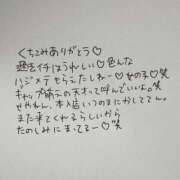 くちこみありがとう♡
過去イチほうれしい♡色んな
ハジメテもらえたしねー♡女の子♡笑
キャップ萌えの天才って呼んでいいよ。笑
せやねん、本人店いつのまにかしててん。
また来てくれるらしいから
たのしみにまってるー♡笑